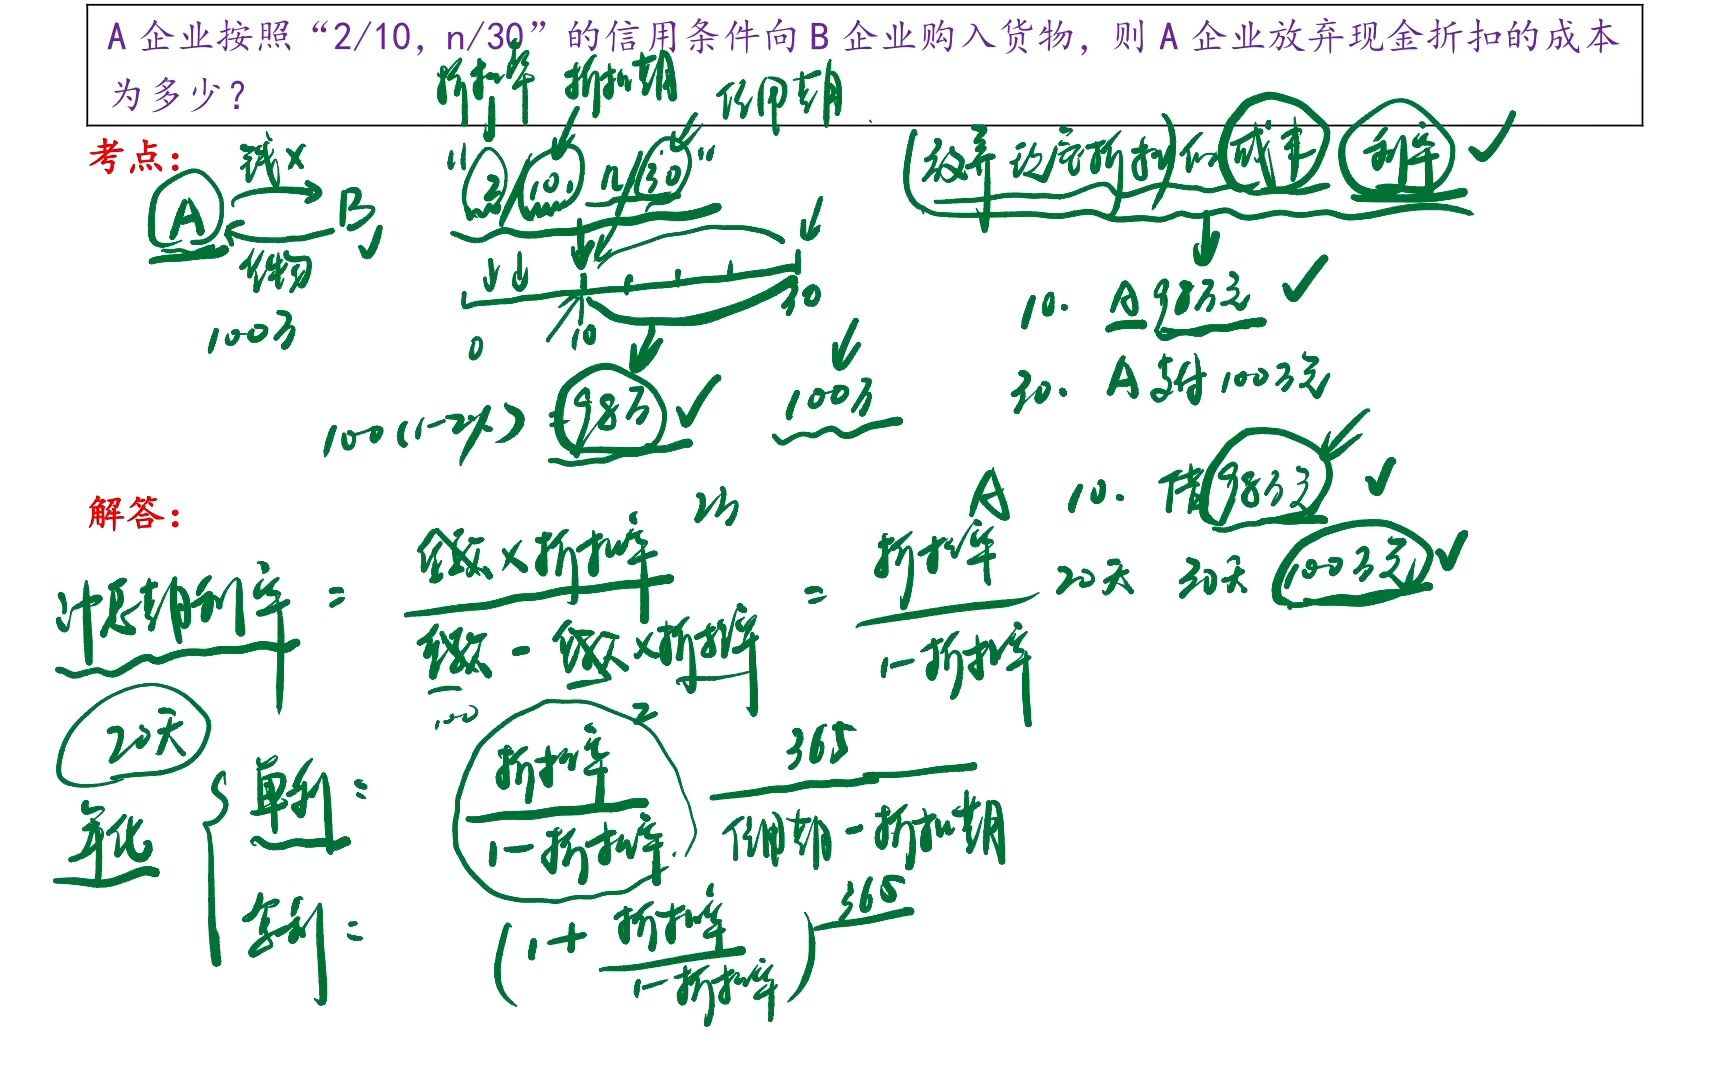 A 企业按照“2/10，n/30”的信用条件向 B 企业购入货物，则 A 企业放弃现金折扣的成本
为多少？
折扣率 折扣期 信用期
考点：
钱 X
A B
货物
100万
“2/10, n/30”
(放弃现金折扣)的成本 利率
0 10 30
10. A 98万元
30. A 支付 100万元
100(1-2%) = 98万 100万
解答：
计息期利率 = 金额×折扣率 / 金额 - 金额×折扣率 = 折扣率 / 1-折扣率
2万
100 2
A 10. 借 98万元
20天 30天 100万元
20天
年化
单利 = 折扣率 / 1-折扣率 365 / 信用期-折扣期
复利 = (1+ 折扣率 / 1-折扣率) 365